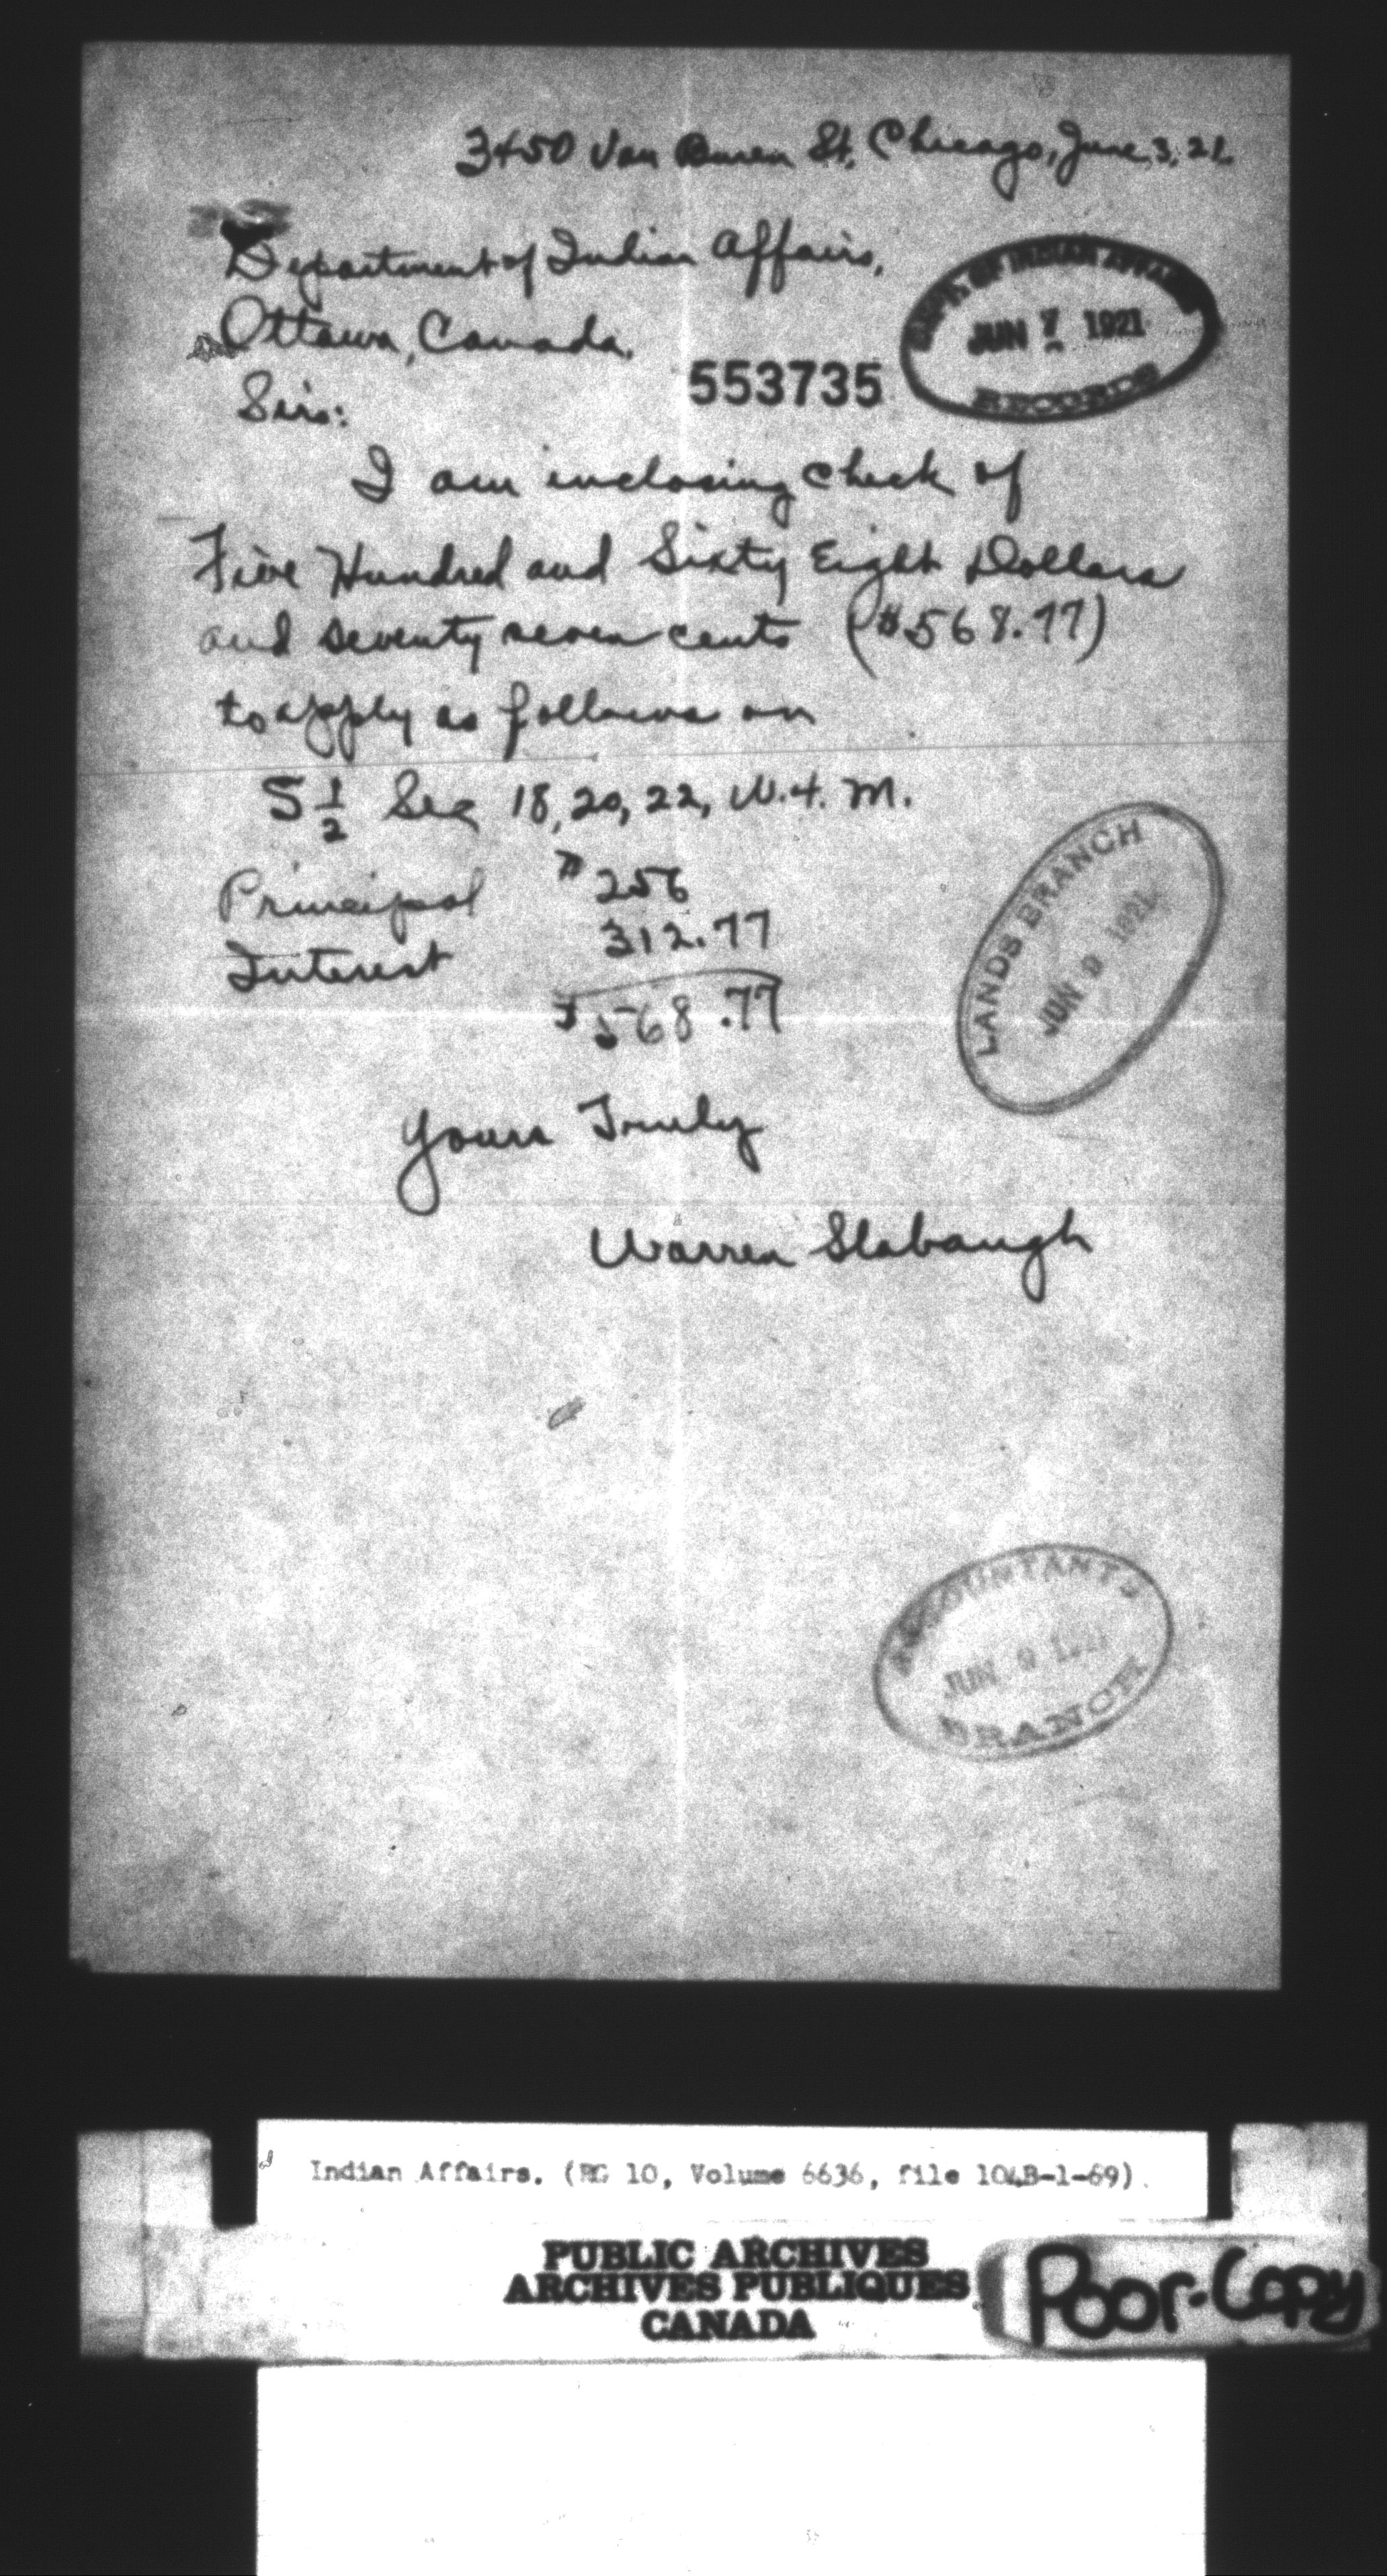 3450 Van Buren St. Chicago, June 3, 21.
Department of Indian Affairs,
Ottawa, Canada.
DEPT. OF INDIAN AFFAIRS
JUN 7 1921
RECORDS
553735
Sirs:
I am inclosing check of
Five Hundred and Sixty Eight Dollars
and seventy seven cents ($568.77)
to apply as follows on
S 1/2 Sec 18, 20, 22, W. 4. M.
Principal $256
Interest 312.77
$568.77
LANDS BRANCH
JUN 9 1921
Yours Truly
Warren Slabaugh
ACCOUNTANT'S
JUN 9 1921
BRANCH
Indian Affairs. (RG 10, Volume 6636, file 104B-1-69)
PUBLIC ARCHIVES
ARCHIVES PUBLIQUES
CANADA
Poor-Copy